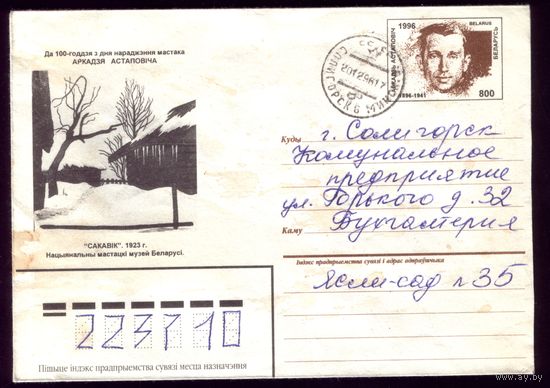 Да 100-годдзя з дня нараджэння мастака
АРКАДЗЯ АСТАПОВІЧА
"САКАВІК". 1923 г.
Нацыянальны мастацкі музей Беларусі.
1996
BELARUS
БЕЛАРУСЬ
АРКАДЗЬ АСТАПОВІЧ
1896-1941
800
СОЛИГОРСК
Куды
г. Солигорск
Комунальное
предприятие
ул. Горького д. 32
Каму
Бухгалтерия
Індэкс прадпрыемства сувязі і адрас адпраўшчыка
Ясли-сад № 35
223710
Пішыце індэкс прадпрыемства сувязі месца назначэння
www.ay.by